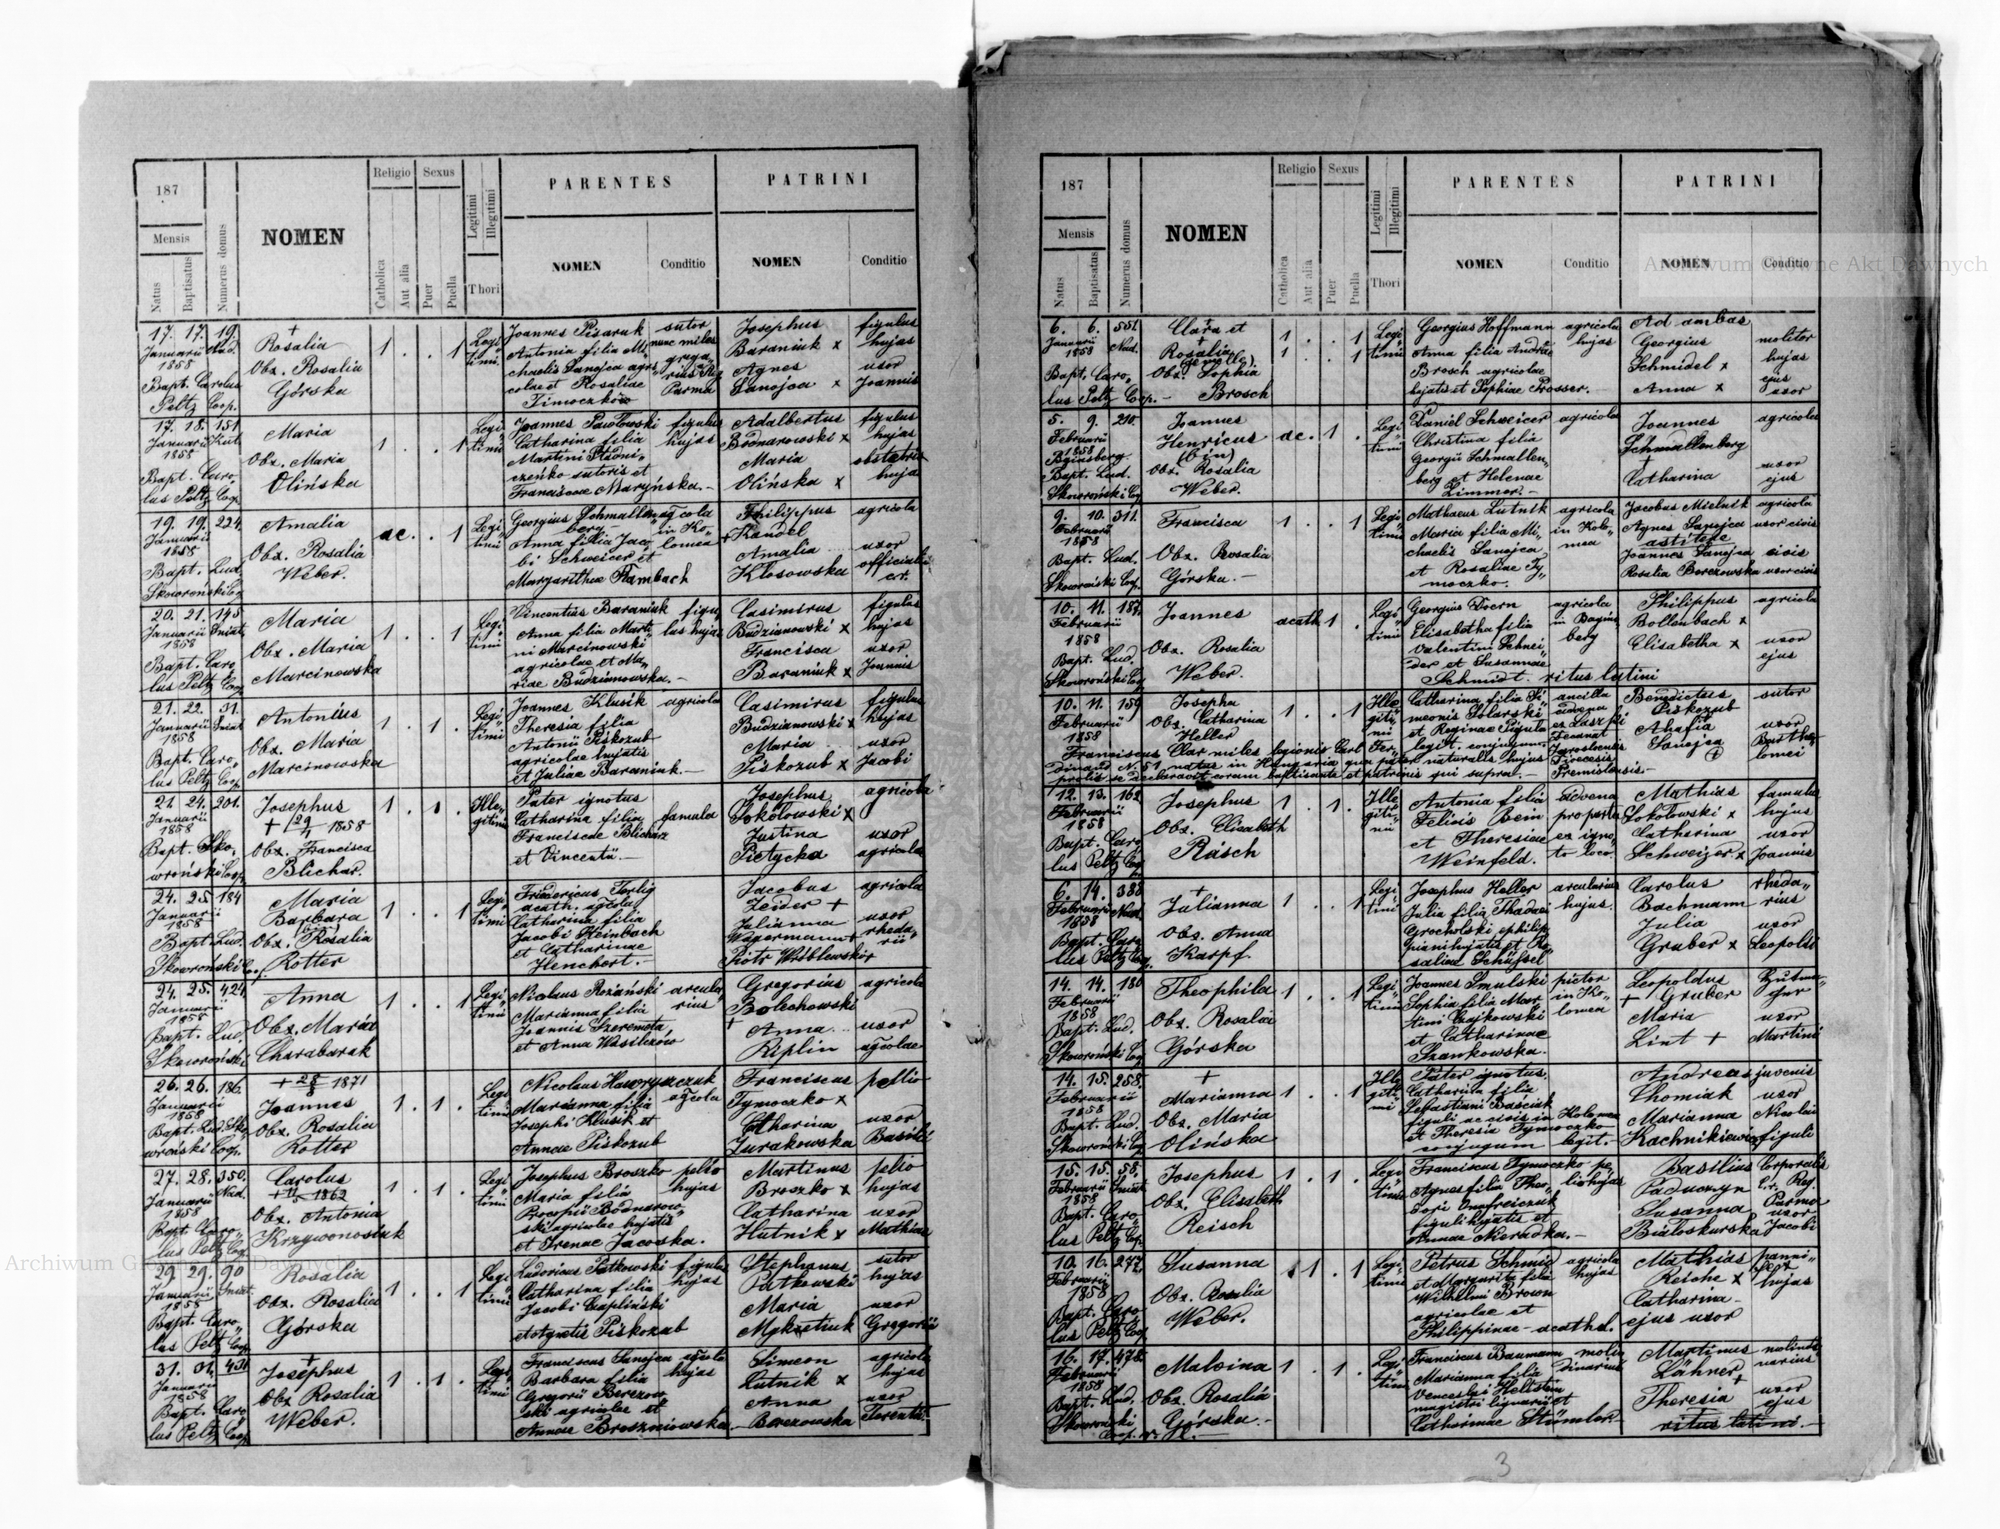 187
Mensis
Natus
Baptisatus
Numerus domus
NOMEN
Religio
Catholica
Aut alia
Sexus
Puer
Puella
Legitimi
Illegitimi
Thori
PARENTES
NOMEN
Conditio
PATRINI
NOMEN
Conditio
17. 17. 19.
Januarii Nad.
1858
Bapt. Carolus
Peltz Coop.
+
Rosalia
Obx. Rosalia
Górska
1 . . 1
Legi
timi
Joannes Pisaruk
Antonia filia Mi
chaelis Sanojca agri
colae et Rosaliae
Timoczków
sutor
nunc miles
grega
rius Reg
Parma
Josephus
Baraniuk x
Agnes
Sanojca x
figulus
hujas
uxor
Joannis
17. 18. 151.
Januarii Kut.
1858
Bapt. Caro,
lus Peltz Coop.
Maria
Obx. Maria
Olińska
1 . . 1
Legi
timi
Joannes Pawłowski
Catharina filia
Martini
czeńko sutoris et
Franciscae Maryńska.
figulus
hujas
Adalbertus
Bodnarowski x
Maria
Olińska x
figulus
hujas
obstetrix
hujas
19. 19. 224.
Januarii
1858
Bapt. Lud.
Skowroński Coop
Amalia
Obx. Rosalia
Weber.
ac. . 1
Legi
timi
Georgius Schmallen
berg
Anna filia Jaco
bi Schweicer et
Margarithae Rambach
agcola
in Ko,
lomea
Philippus
+ Kandel
Amalia
Kłosowska
agricola
uxor
officialis
cr.
20. 21. 145
Januarii Sniat.
1858
Bapt. Caro
lus Peltz Coop
Maria
Obx. Maria
Marcinowska
1 . . 1
Legi
timi
Vincentius Baraniuk
Anna filia Marti
ni Marcinowski
agricolae et Ma,
riae Budzianowska.
figu
lus hujas
Casimirus
Budzianowski x
Francisca
Baraniuk x
figulus
hujas
uxor
Joannis
21. 22. 31.
Januarii Sniat
1858
Bapt. Caro,
lus Peltz Coop.
Antonius
Obx. Maria
Marcinowska
1 . 1 .
Legi
timi
Joannes Klusik
Theresia filia
Antonii Piskozub
agricolae hujatis
et Juliae Baraniuk.
agricola
Casimirus
Budzianowski x
Maria
Piskozub x
figulus
hujas
uxor
Jacobi
21. 24. 201.
Januarii
1858
Bapt. Sko,
wroński Coop.
Josephus
+ 29/1 1858
Obx. Francisca
Blichar.
1 . 1 .
Ille,
gitimi
Pater ignotus
Catharina filia
Franciscae Blichar
et Vincentii.
famula
Josephus
Sokołowski x
Justina
Pietycka
agricola
uxor
agricolae
24. 25. 184
Januarii
1858
Bapt. Lud.
Skowroński Coop.
Maria
Barbara
(bin)
Obx. Rosalia
Rotter
1 . . 1
Legi
timi
Fridericus Terlig
acath. agcola
Catharina filia
Jacobi Heinbach
et Catharinae
Henchert.
Jacobus
Zeider +
Julianna
Wagermann +
Piotr Wróblewski
agricola
uxor
rheda,
rii
24. 25. 424
Januarii
1858
Bapt. Lud.
Skowroński
Anna
Obx. Maria
Charabaruk
1 . . 1
Legi
timi
Nicolaus Rożański
Marianna filia
Joannis Szeremeta,
et Anna Wasilczów
arcula
rius
Gregorius
Bolechowski
+ Anna
Riplin
agricola
uxor
agcolae
26. 26. 186.
Januarii
1858
Bapt. Lud. Sko
wroński Coop.
+ 28/8 1871
Joannes
Obx. Rosalia
Rotter
1 . 1 .
Legi
timi
Nicolaus Hawryszczuk
Marianna filia
Josephi Klusik et
Annae Piskozub
agcola
Franciscus
Tymoczko x
Catharina
Żurakowska
pellio
uxor
Basilii
27. 28. 350.
Januarii Nad.
1858
Bapt. Caro,
lus Peltz Coop
Carolus
1862
Obx. Antonia
Krzywonosiuk
1 . 1 .
Legi
timi
Josephus Broszko
Maria filia
Procopii Bodnarow
ski agricolae hujatis
et Irenae Jacoska.
pelio
hujas
Martinus
Broszko x
Catharina
Hutnik x
pelio
hujas
uxor
Mathiae
29. 29. 90
Januarii Sniat.
1858
Bapt. Caro,
lus Peltz Coop.
Rosalia
Obx. Rosalia
Górska
1 . . 1
Legi
timi
Ludovicus Petkowski
Catharina filia
Jacobi Czapliński
et Agnetis Piskozub
figulus
hujas
Stephanus
Petkowski
Maria
Mykietiuk
sutor
hujas
uxor
Gregorii
31. 31.
Januarii
1858
Bapt. Caro
lus Peltz Coop
+
Josephus
Obx Rosalia
Weber.
1 . 1 .
Legi
timi
Franciscus Sanojca
Barbara filia
Gregorii Berezow
ski agricolae et
Annae Broszniowska.
agcola
hujas
Simeon
Lutnik x
Anna
Berezowska
agricola
hujas
uxor
Terentii
187
Mensis
Natus
Baptisatus
Numerus domus
NOMEN
Religio
Catholica
Aut alia
Sexus
Puer
Puella
Legitimi
Illegitimi
Thori
PARENTES
NOMEN
Conditio
PATRINI
NOMEN
Conditio
6. 6. 551.
Januarii Nad.
1858
Bapt. Caro,
lus Peltz Coop.
Clara et
+
Rosalia
(gemellae)
Obx. Sophia
Brosch
1 . . 1
1 . . 1
Legi
timi
Georgius Hoffmann
Anna filia Andreae
Brosch agricolae
hujatis et Sophiae Prosser.
agricola
hujas
Ad ambas
Georgius
Schmidel x
Anna x
molitor
hujas
ejus
uxor
5. 9. 210.
Februarii
1858
Bginsberg
Bapt. Lud.
Skowroński Coop
Joannes
Henricus
(bin)
Obx. Rosalia
Weber.
ac. 1 .
Legi
timi
Daniel Schweicer
Christina filia
Georgii Schmallen,
berg et Helenae
Zimmer.
agricola
Joannes
Schmallenberg
+
Catharina
agricola
uxor
ejus
9. 10. 311.
Februarii
1858
Bapt. Lud.
Skowroński Coop.
Francisca
Obx. Rosalia
Górska.
1 . . 1
Legi
timi
Mathaeus Lutnik
Maria filia Mi,
chaelis Sanojca
et Rosaliae Ty,
moczko.
agricola
in Kolo,
mea
Jacobus Mielnik
Agnes Sanojca
astitere
Joannes Sanojca
Rosalia Berezowska
agricola
uxor civis
civis
uxor civis
10. 11. 187.
Februarii
1858
Bapt. Lud.
Skowroński Coop
Joannes
Obx. Rosalia
Weber.
acath. 1 .
Legi
timi
Georgius Doern
Elisabetha filia
Valentini Schnei
der et Susannae
Schmidt. ritus latini
agricola
in Bagins
berg
Philippus
Bollenbach x
Elisabetha x
agricola
uxor
ejus
10. 11. 159
Februarii
1858
Josepha
Obx. Catharina
Heller
1 . . 1
Ille
giti,
mi
Catharina filia Si
meonis Solarski
et Reginae Piguła
legit. conjugum,
ancilla
ex Laszki
Decanat
Jaroslaviensis
Dioecesis
Premislensis.
Benedictus
Piskozub
Ahafia
Sanojca
sutor
uxor
Bartho
lomei
Franciscus Clar miles legionis Carl Fer,
dinand N. 51 natus in Hungaria qua pater naturalis hujus
prolis se declaravit coram baptisante et patrinis qui supra.
12. 13. 162
Februarii
1858
Bapt. Caro
lus Peltz Coop
Josephus
Obx. Elisabeth
Räsch
1 . 1 .
Ille
giti,
mi
Antonia filia
Felicis Bein
et Theresiae
Weinfeld.
advena
proporta
ex igno,
to loco.
Mathias
Sokołowski x
Catharina
Schweizer x
famulus
hujas
uxor
Joannis
6. 14. 388
Februarii Nad.
1858
Bapt. Caro
lus Peltz Coop.
+
Julianna
Obx. Anna
Karpf.
1 . . 1
Legi
timi
Josephus Heller
Julia filia Thadaei
Grocholski ephilip
piani hujatis et Ro,
saliae Schüfsel
arcularius
hujas.
Carolus
Bachmann
Julia
Gruber x
rheda,
rius
uxor
Leopoldi
14. 14. 180
Februarii
1858
Bapt. Lud.
Skowroński Coop
Theophila
Obx. Rosalia
Górska
1 . . 1
Legi
timi
Joannes Smulski
Sophia filia Mar
tini Czajkowski
et Catharinae
Szankowska.
pictor
in Ko,
lomea
Leopoldus
+ Gruber
Maria
Lint +
uxor
Martini
14. 15. 258.
Februarii
1858
Bapt. Lud.
Skowroński Coop
+
Marianna
Obx. Maria
Olińska
1 . . 1
Ille
giti
mi
Pater ignotus.
Catharina filia
Sebastiani Baściak
figuli ac civis in
et Theresia Tymoczko
conjugum
Kolomea
legit.
Andreas
Chomiak
Marianna
Kachnikiewicz
juvenis
uxor
Nicolai
figuli
15. 15. 58.
Februarii Sniat
1858
Bapt. Caro
lus Peltz Coop
Josephus
Obx. Elisabeth
Reisch
1 . 1 .
Legi
timi
Franciscus Tymoczko
Agnes filia Theo,
dori Onufreiczuk
figuli hujatis et
Annae Neradka.
pe,
lio hujas
Basilius
Paduczyn
Susanna
Białoskurska
Corporalis
Cr. Reg.
Parma
uxor
Jacobi
10. 16. 277.
Februarii
1858
Bapt. Caro
lus Peltz Coop
Susanna
Obx. Rosalia
Weber.
1 . 1
Legi
timi
Petrus Schmid
et Margarita filia
Wilhelmi Brown
agricolae et
Philippinae – acathol.
agricola
hujas
Mathias
Reiche x
Catharina
ejus uxor
panni,
fex
hujas
16. 17. 478.
Februarii
1858
Bapt. Lud.
Skowroński
Coop.
Malvina
Obx. Rosalia
Górska.
1 . 1 .
Legi
timi
Franciscus Baumann
Marianna filia
Venceslai Heltstein
magistri lignarii et
Catharinae Stümler
molen
dinarius
Martinus
Lähner
+
Theresia
ritus latini.
molindi
narius
uxor
ejus
3
Archiwum Główne Akt Dawnych
Archiwum Główne Akt Dawnych